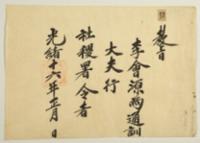 敎旨
李會源爲通訓
大夫行
社稷署令者
光緖十六年五月 日